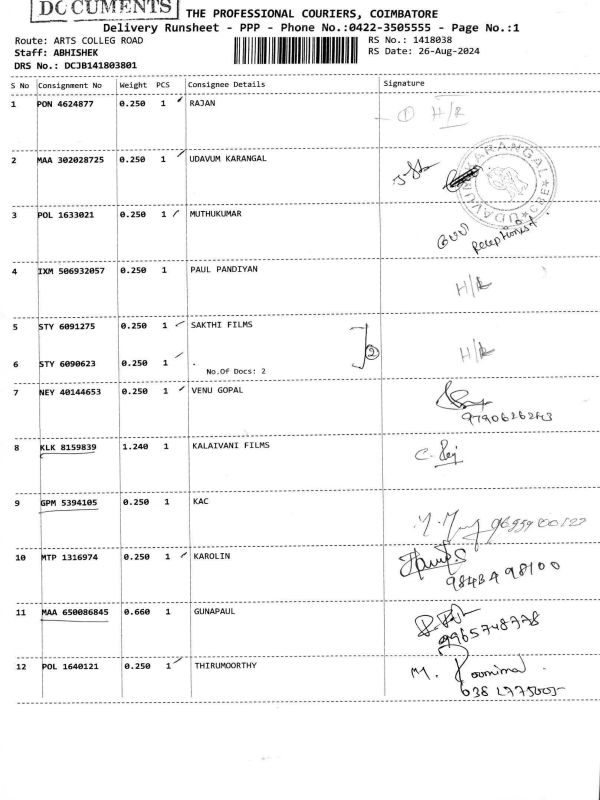 DOCUMENTS
THE PROFESSIONAL COURIERS, COIMBATORE
Delivery Runsheet - PPP - Phone No.:0422-3505555 - Page No.:1
Route: ARTS COLLEG ROAD
RS No.: 1418038
Staff: ABHISHEK
RS Date: 26-Aug-2024
DRS No.: DCJB141803801
S No Consignment No Weight PCS Consignee Details Signature
1 PON 4624877 0.250 1 RAJAN
1 H/R
2 MAA 302028725 0.250 1 UDAVUM KARANGAL
UDAVUM KARANGAL CBE
3 POL 1633021 0.250 1 MUTHUKUMAR
Receptionist
4 IXM 506932057 0.250 1 PAUL PANDIYAN
H/R
5 STY 6091275 0.250 1 SAKTHI FILMS
2
6 STY 6090623 0.250 1 .
H/R
No.Of Docs: 2
7 NEY 40144653 0.250 1 VENU GOPAL
9790626243
8 KLK 8159839 1.240 1 KALAIVANI FILMS
9 GPM 5394105 0.250 1 KAC
10 MTP 1316974 0.250 1 KAROLIN
98434 98100
11 MAA 650086845 0.660 1 GUNAPAUL
9965748778
12 POL 1640121 0.250 1 THIRUMOORTHY
M. Poornima